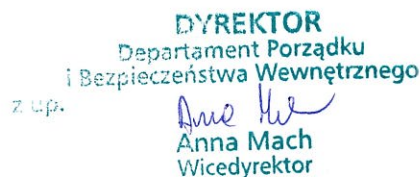 DYREKTOR
Departament Porządku
i Bezpieczeństwa Wewnętrznego
z up.
Anna Mach
Wicedyrektor